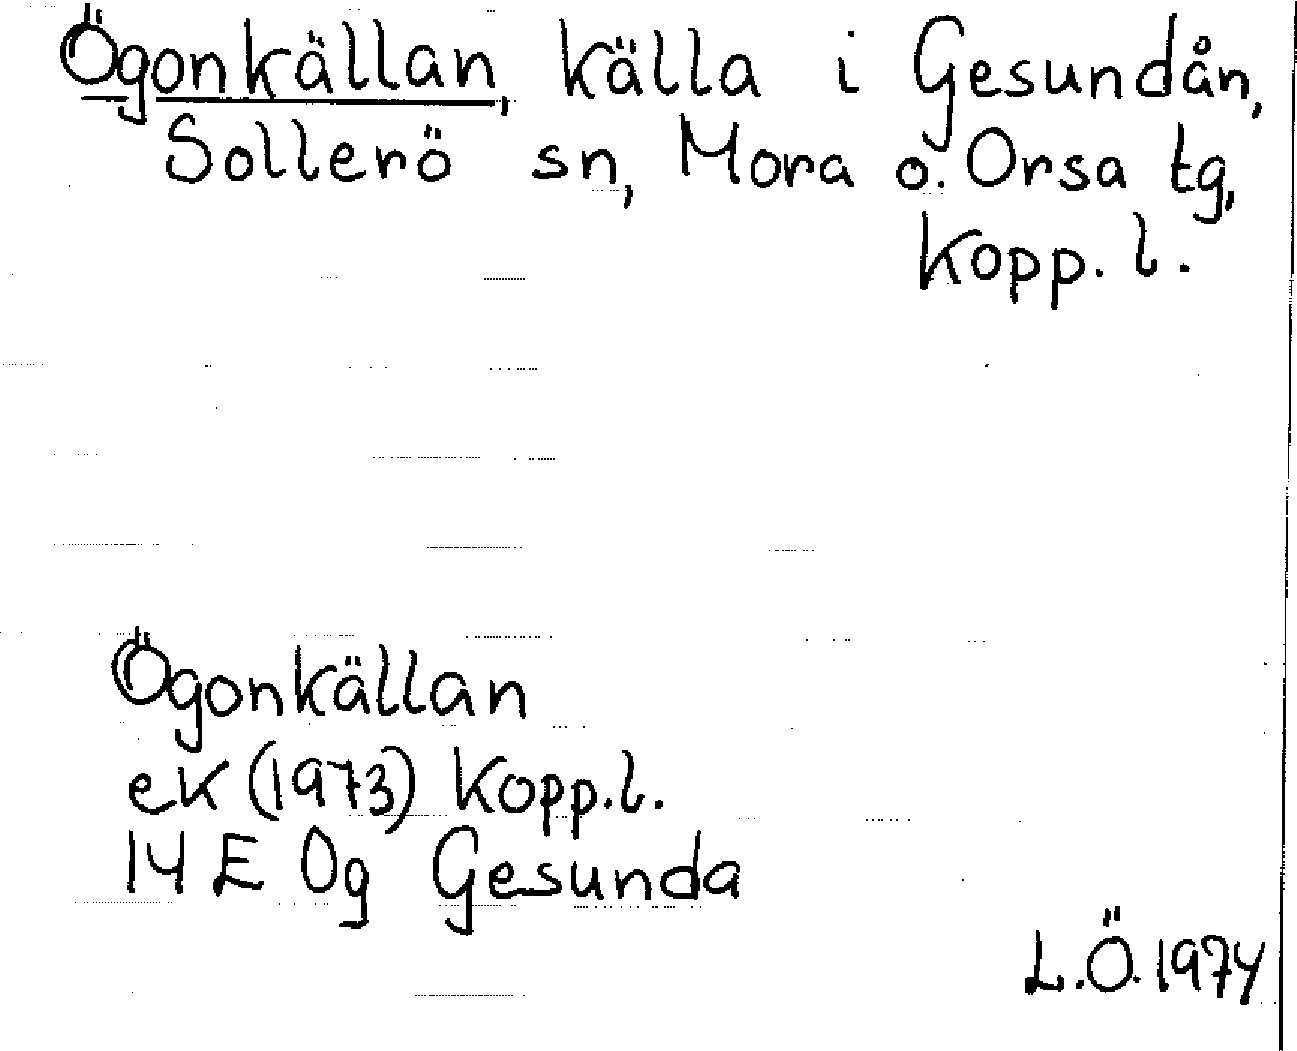 Ögonkällan, källa i Gesundån,
Sollerö sn, Mora o. Orsa tg,
Kopp. l.
Ögonkällan
ek (1973) Kopp.l.
14 E 0g Gesunda
L.Ö. 1974